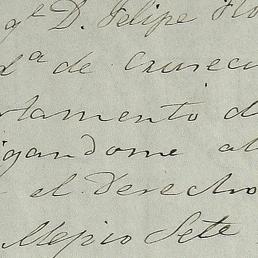 qe D. Felipe Flo
da de
rtamento d
igandome al
el Derecho
Mejico Sete